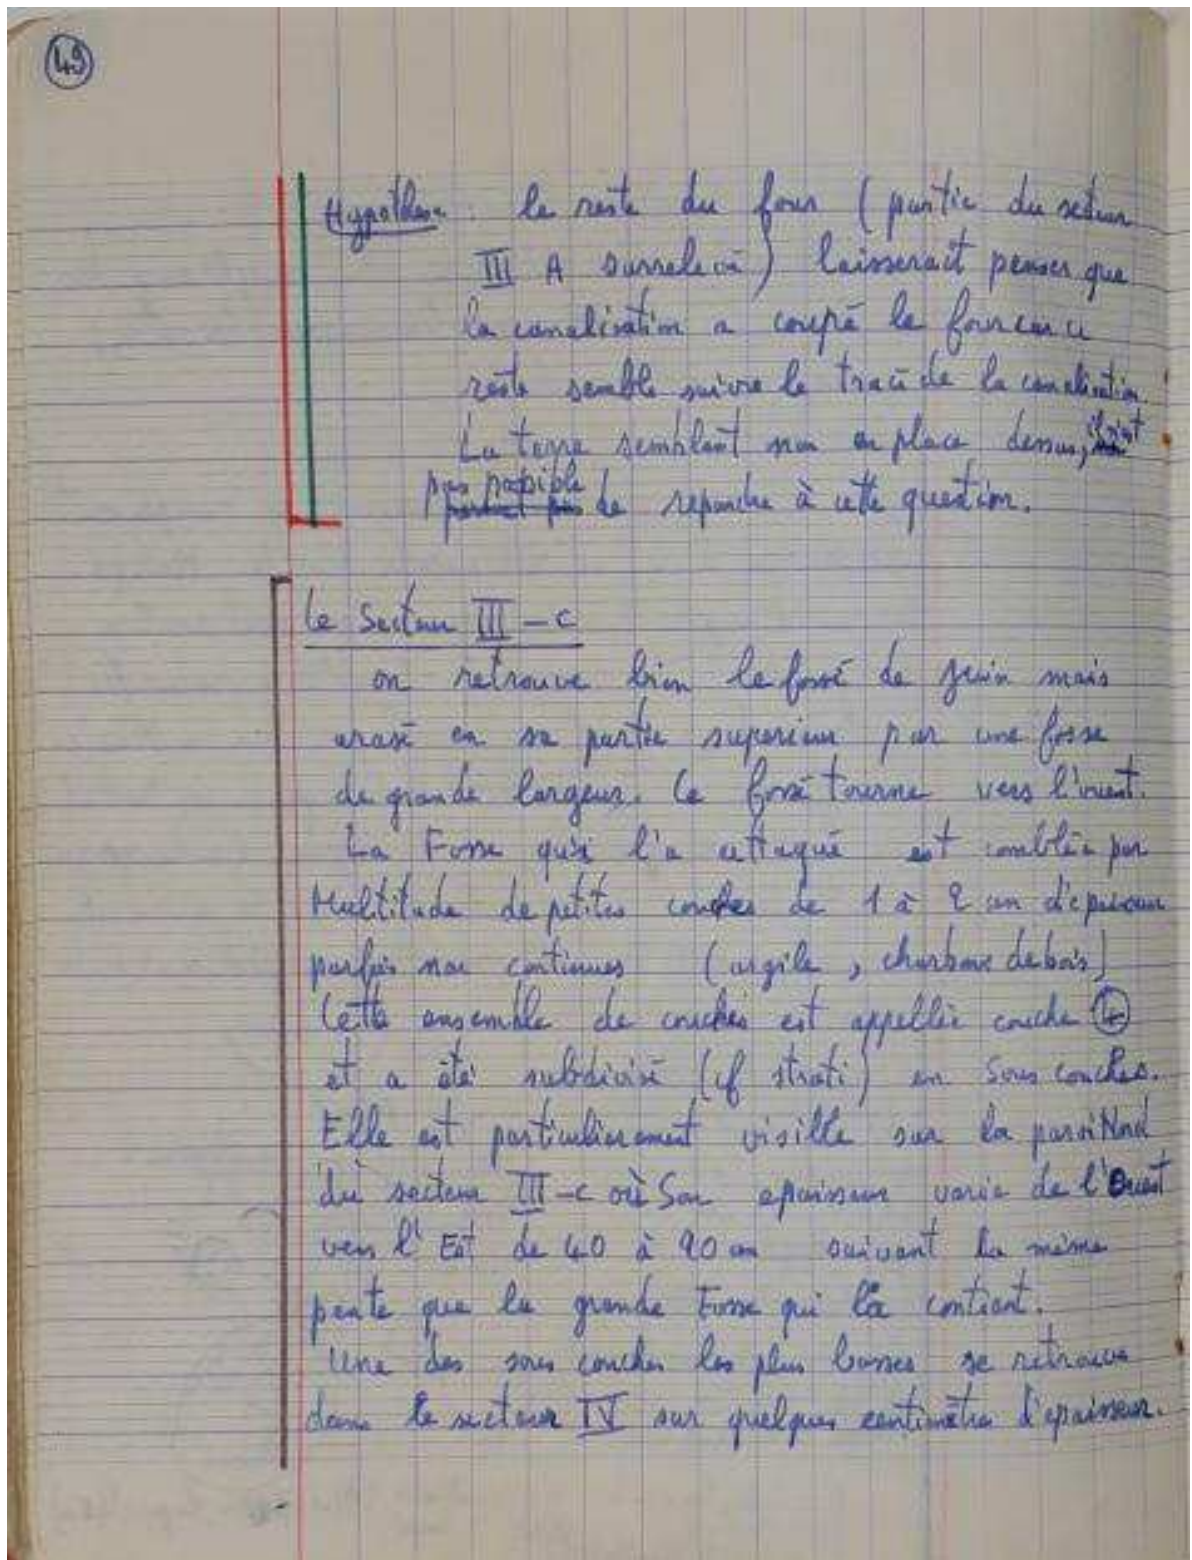 49
Hypothèse : le reste du four (partie du secteur
III A surrelevé) laisserait penser que
la canalisation a coupé le four car ce
reste semble suivre le tracé de la canalisation
La terre semblant non en place dessus, il n'est
pas possible
de repondre à cette question.
Le Secteur III - C
on retrouve bien le fossé de juin mais
arasé en sa partie superieur par une fosse
de grande largeur. Ce fossé tourne vers l'ouest.
La Fosse qui l'a attaqué est comblée par
Multitude de petites couches de 1 à 2 cm d'épaisseur
parfois non continues (argile, charbons de bois)
Cette ensemble de couches est appellée couche 4
et a été subdivisé (cf strati) en Sous couches.
Elle est particulierement visible sur la paroi Nord
du secteur III - C où Son epaisseur varie de l'Ouest
vers l'Est de 40 à 90 cm suivant la même
pente que la grande Fosse qui la contient.
Une des sous couches les plus basses se retrouve
dans le secteur IV sur quelques centimètres d'epaisseur.